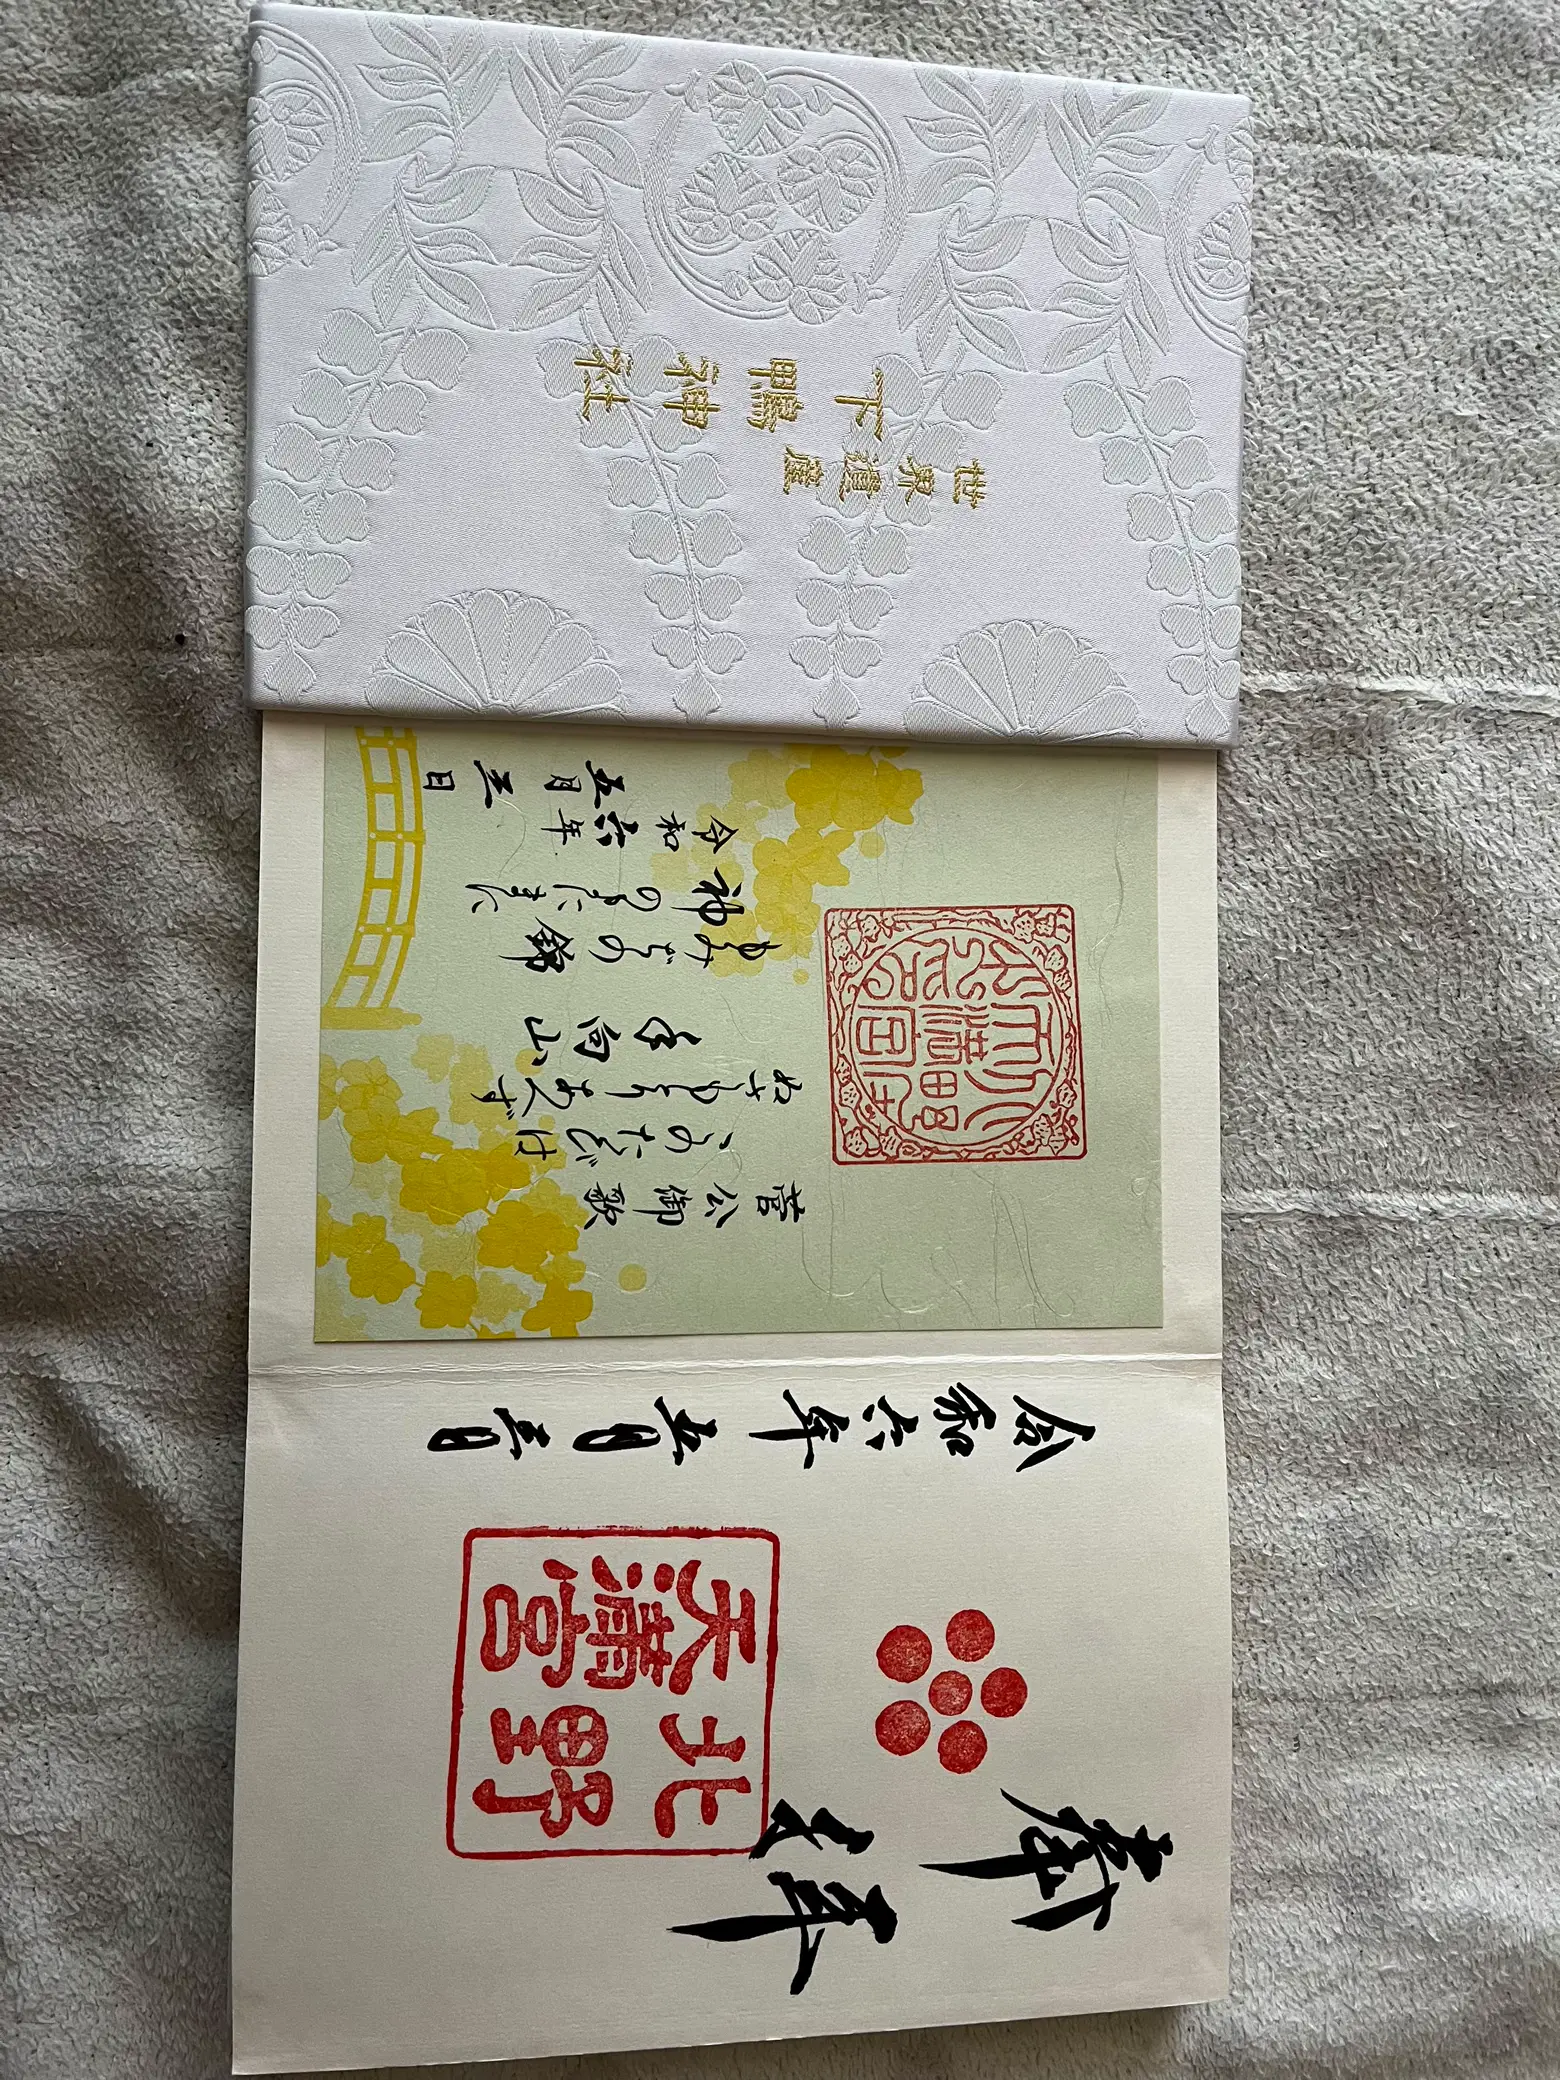 奉拝
北野
天滿宮
令和六年五月三日
菅公御歌
このたびは
ぬさもとりあへず
手向山
もみぢの錦
神のまにまに
令和六年
五月三日
世界遺産
下鴨神社